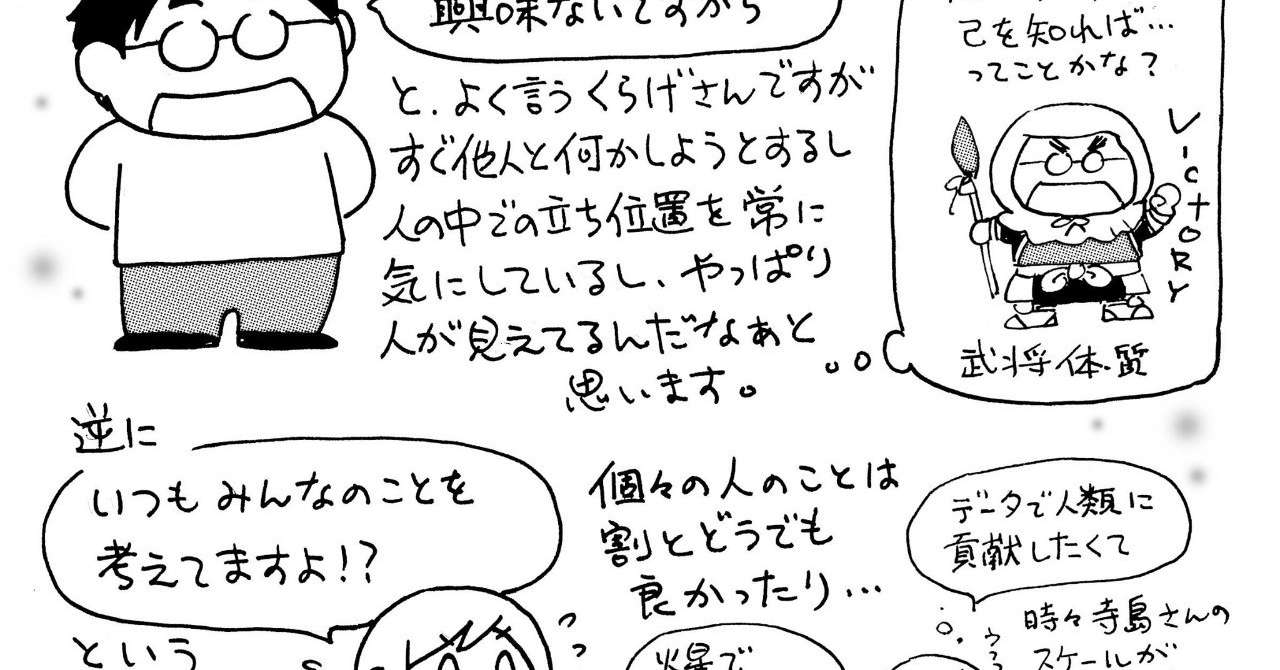 興味ないですから
と、よく言うくらげさんですが
すぐ他人と何かしようとするし
人の中での立ち位置を常に
気にしているし、やっぱり
人が見えてるんだなぁと
思います。
己を知れば…
ってことかな?
VICTORY
武将体質
逆に
いつもみんなのことを
考えてますよ!?
という
個々の人のことは
割とどうでも
良かったり…
データで人類に
貢献したくて
時々寺島さんの
スケールが
火星で